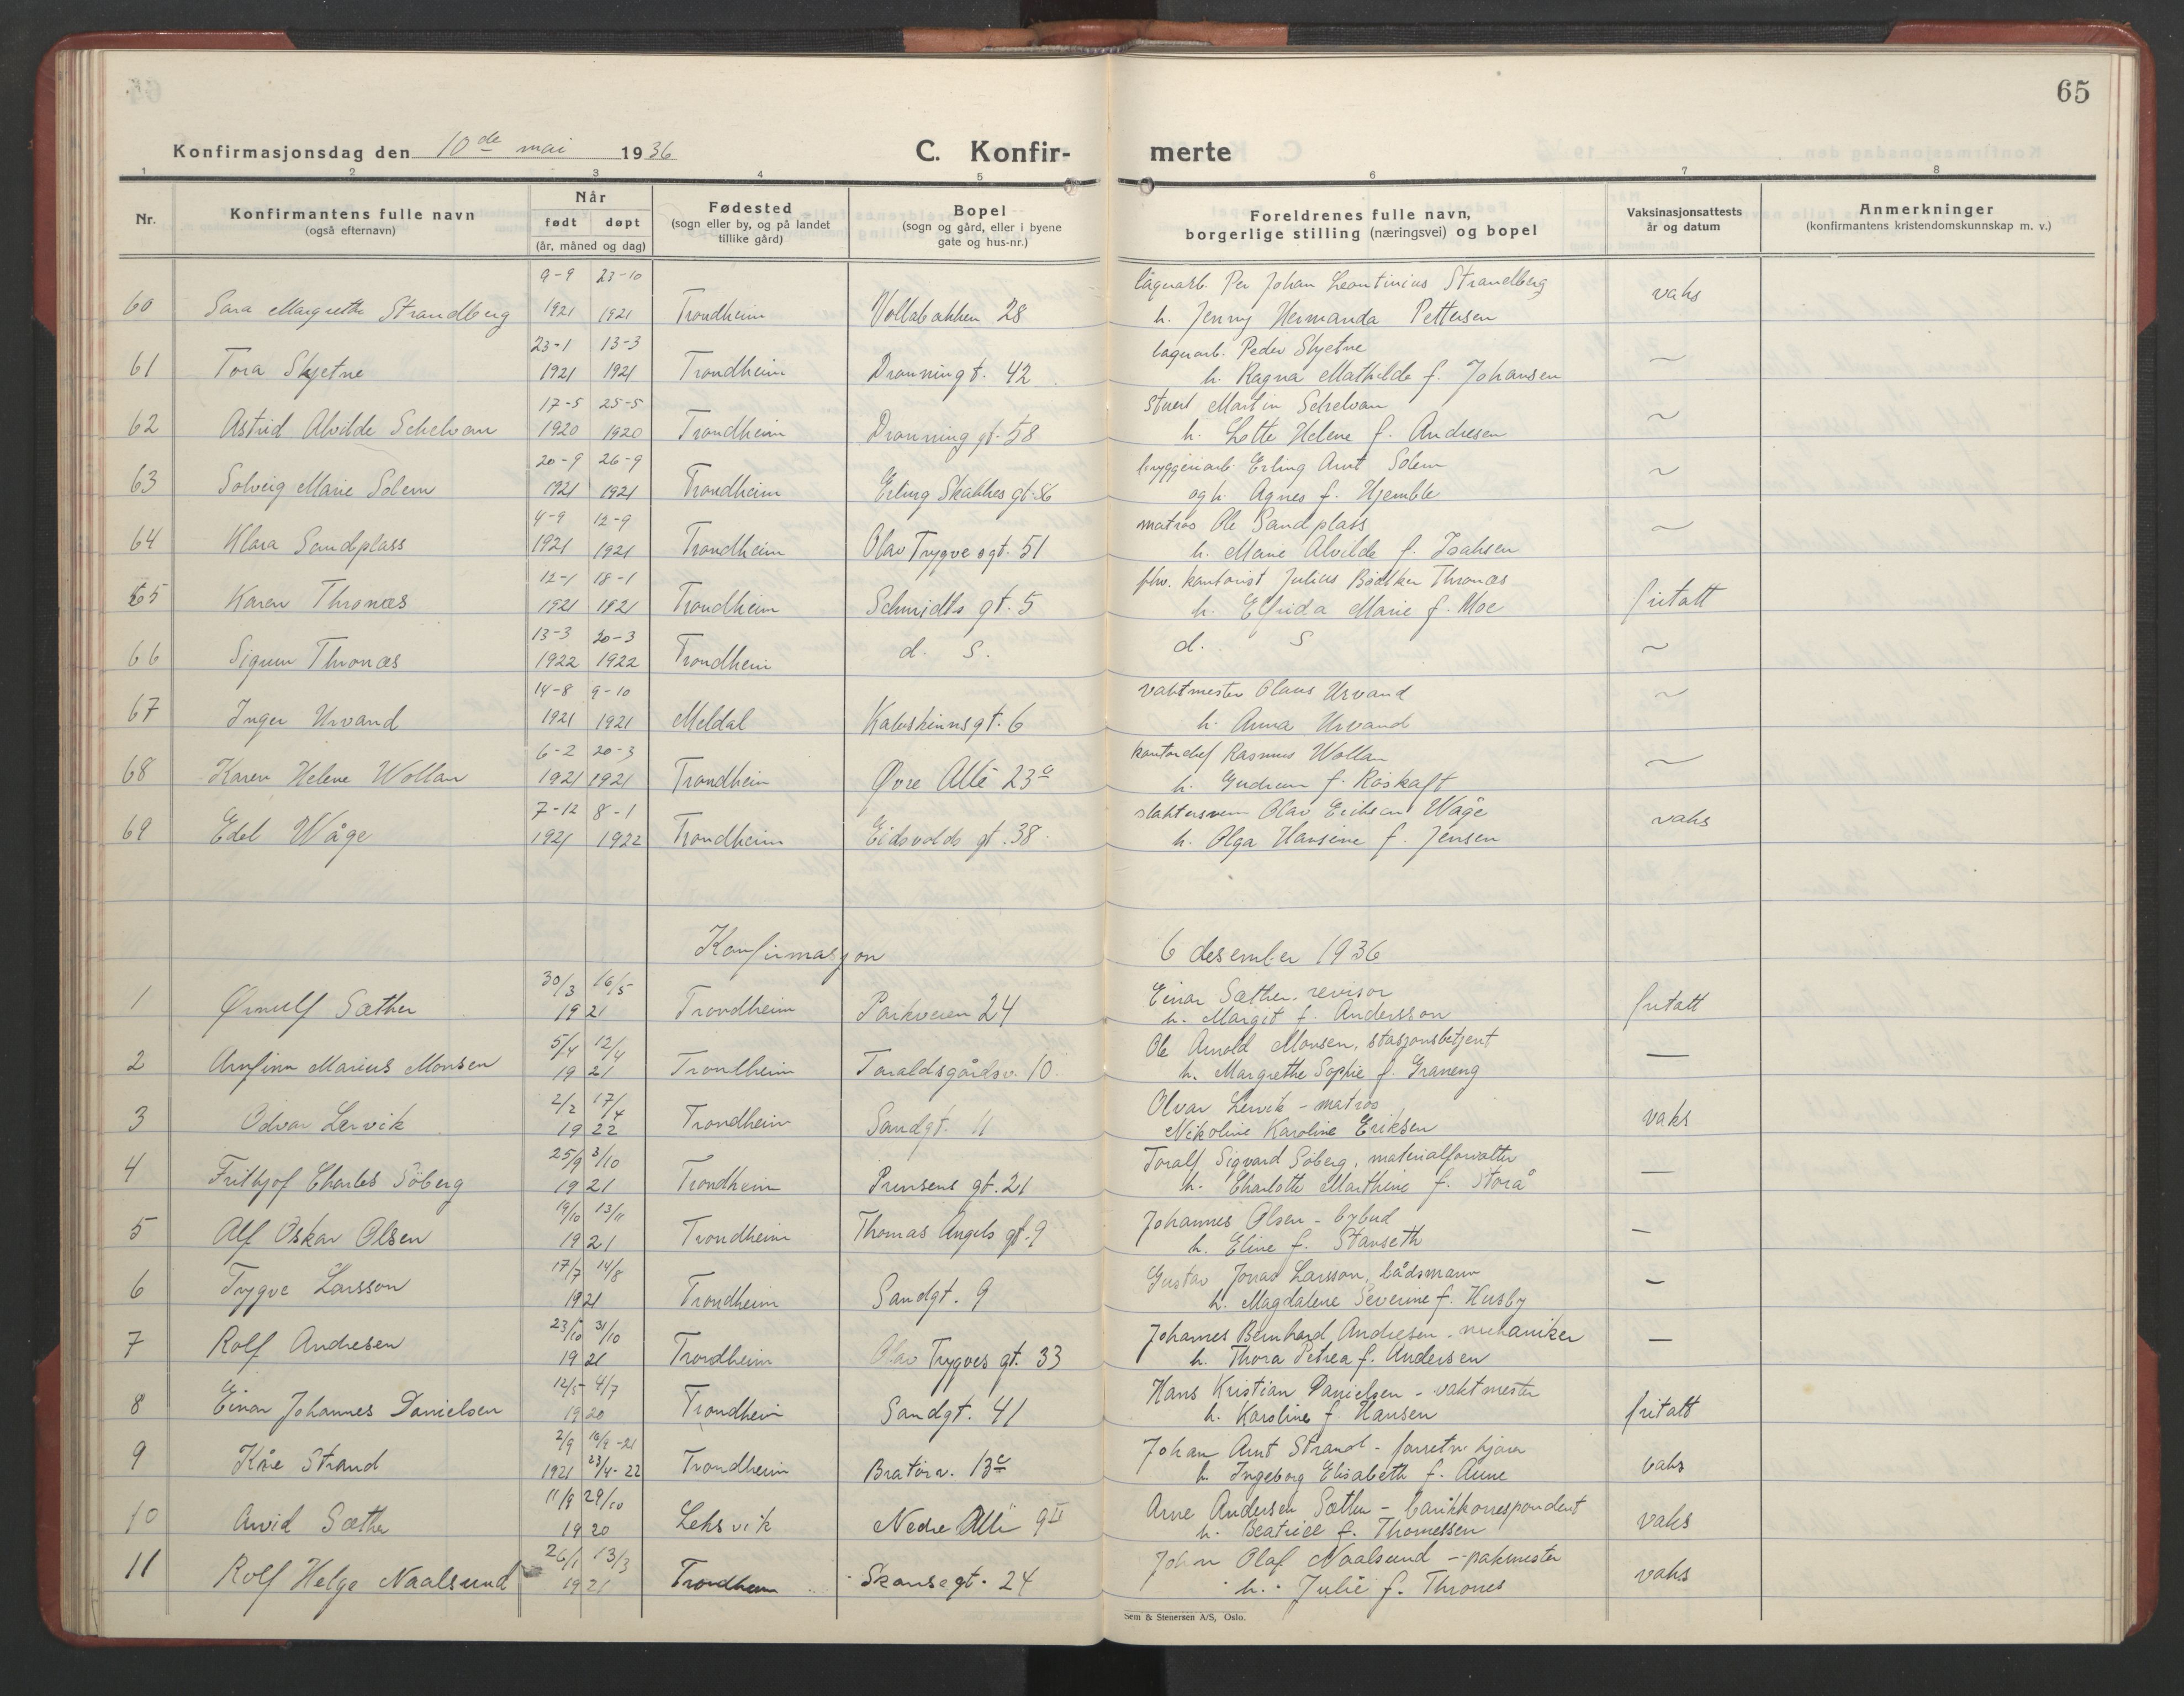 65
Konfirmasjonsdag den 10de mai 1936 C. Konfir- merte
1 2 3 4 5 6 7 8
Nr. Konfirmantens fulle navn (også efternavn) Når født døpt (år, måned og dag) Fødested (sogn eller by, og på landet tillike gård) Bopel (sogn og gård, eller i byene gate og hus-nr.) Foreldrenes fulle navn, borgerlige stilling (næringsvei) og bopel Vaksinasjonsattests år og datum Anmerkninger (konfirmantens kristendomskunnskap m. v.)
9-9 23-10 lagerarb. Per Johan Leontinius Strandberg
60 Sara Margrethe Strandberg 1921 1921 Trondheim Vollabakken 28 h. Jenny Hermanda Pettersen vaks
23-1 13-3 lagerarb. Peder Skjetne
61 Tora Skjetne 1921 1921 Trondheim Dronningt. 42 h. Ragna Mathilde f. Johansen ~
17-5 25-5 stuert Martin Schelvan
62 Astrid Alvilde Schelvan 1920 1920 Trondheim Dronning gt. 58 h. Lotte Helene f. Andresen ~
20-9 26-9 bryggeriarb. Erling Arnt Solem
63 Solveig Marie Solem 1921 1921 Trondheim Erling Skakkes gt. 56 og h. Agnes f. Hjemble ~
4-9 12-9 matros Ole Sandplass
64 Klara Sandplass 1921 1921 Trondheim Olav Trygve sgt. 51 h. Marie Alvilde f. Isaksen ~
12-1 18-1 fhv. kontorist Julius Bödtker Thronæs
65 Karen Thronæs 1921 1921 Trondheim Schmidts gt. 5 h. Elfrida Marie f. Moe fritatt
13-3 20-3
66 Sigrun Thronæs 1922 1922 Trondheim d. S. d. S ~
14-8 9-10 vaktmester Olaus Urvand
67 Inger Urvand 1921 1921 Meldal Kalvskinnsgt. 6 h. Anna Urvand ~
6-2 20-3 kontorchef Rasmus Wollan
68 Karen Helene Wollan 1921 1921 Trondheim Øvre Allé 23a h. Gudrun f. Röskaft ~
7-12 8-1 slaktersvenn Olav Eriksen Wåge
69 Edel Wåge 1921 1922 Trondheim Eidsvolds gt. 38 h. Olga Hansine f. Jensen vaks
Konfirmasjon 6 desember 1936
30/3 16/5 Einar Sæther, revisor
1 Ørnulf Sæther 1921 Trondheim Parkveien 24 h. Margit f. Andersson fritatt
5/4 12/4 Ole Arnold Monsen, stasjonsbetjent
2 Arnfinn Marius Monsen 1921 Trondheim Taraldsgårdsv. 10 h. Margrethe Sophie f. Graneng —
2/2 17/4 Olvar Lervik - matros
3 Odvar Lervik 1922 Trondheim Sandgt. 11 Nikoline Karoline Eriksen vaks
25/9 3/10 Toralf Sigvard Söberg, materialforvalter
4 Frithjof Charles Söberg 1921 Trondheim Prinsens gt. 21 h. Charlotte Marthine f. Storå —
19/10 13/11 Johannes Olsen - bybud
5 Alf Oskar Olsen 1921 Trondheim Thomas Angels gt. 9 h. Eline f. Stanseth —
17/7 14/8 Gustav Jonas Larsson, bådsmann
6 Trygve Larsson 1921 Trondheim Sandgt. 9 h. Magdalene Severine f. Husby —
23/10 31/10 Johannes Bernhard Andresen - mekaniker
7 Rolf Andresen 1921 Trondheim Olav Trygves gt. 33 h. Thora Petrea f. Andersen —
12/5 4/7 Hans Kristian Danielsen - vaktmester
8 Einar Johannes Danielsen 1920 Trondheim Sandgt. 41 h. Karoline f. Hansen fritatt
2/9 -21 Johan Arnt Strand
9 Kåre Strand 1921 23/4-22 Trondheim Bratörv. 13c h. Ingeborg Elisabeth f. Aune vaks
11/9 29/10 Arne Andersen Sæther - bankkorrespondent
10 Arvid Sæther 1920 Leksvik Nedre Allé 9II h. Beatrice f. Thomessen vaks
26/1 13/3 John Olaf Naalsund - pakmester
11 Rolf Helge Naalsund 1921 Trondheim Skansegt. 24 h. Julie f. Thrones vaks
Sem & Stenersen A/S, Oslo.